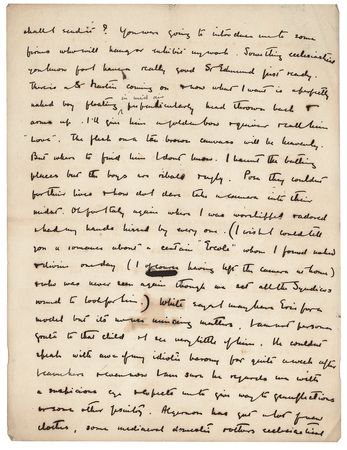 shall I send it? You were going to introduce me to some
firms who will hang or exhibit my work. Something ecclesiastical
you know for I have a really good St Edmund just ready.
There is a St Martin coming on & now what I want is a perfectly
naked boy floating in mid air perpendicularly head thrown back &
arms up. I'll give him a golden bow & quiver & call him
"Love". The flesh on a tan brown canvas will be heavenly.
But where to find him I don't know. I haunt the bathing
places but the boys are ribald & ugly. Pose they couldn't
for their lives & how dare take a camera into their
midst. Oh for Italy again where I was worshipped & adored
& had my hands kissed by every one. (I wish I could tell
you a romance about a certain "Ercole" whom I found naked
& divine one day (I having left the camera at home)
& who was never seen again though we set all the Syndics
round to look for him.) White says I may have Eric for a
model but its no use mincing matters, I am not persona
grata to that child & see very little of him. He couldn't
speak with awe of my idiotic barony for quite a week after
he came here & even now I am sure he regards me with
a suspicious eye & expects me to give way to genuflections
or some other Jesuitry. Algernon has got a lot of new
clothes, some mediaeval domestic & others ecclesiastical